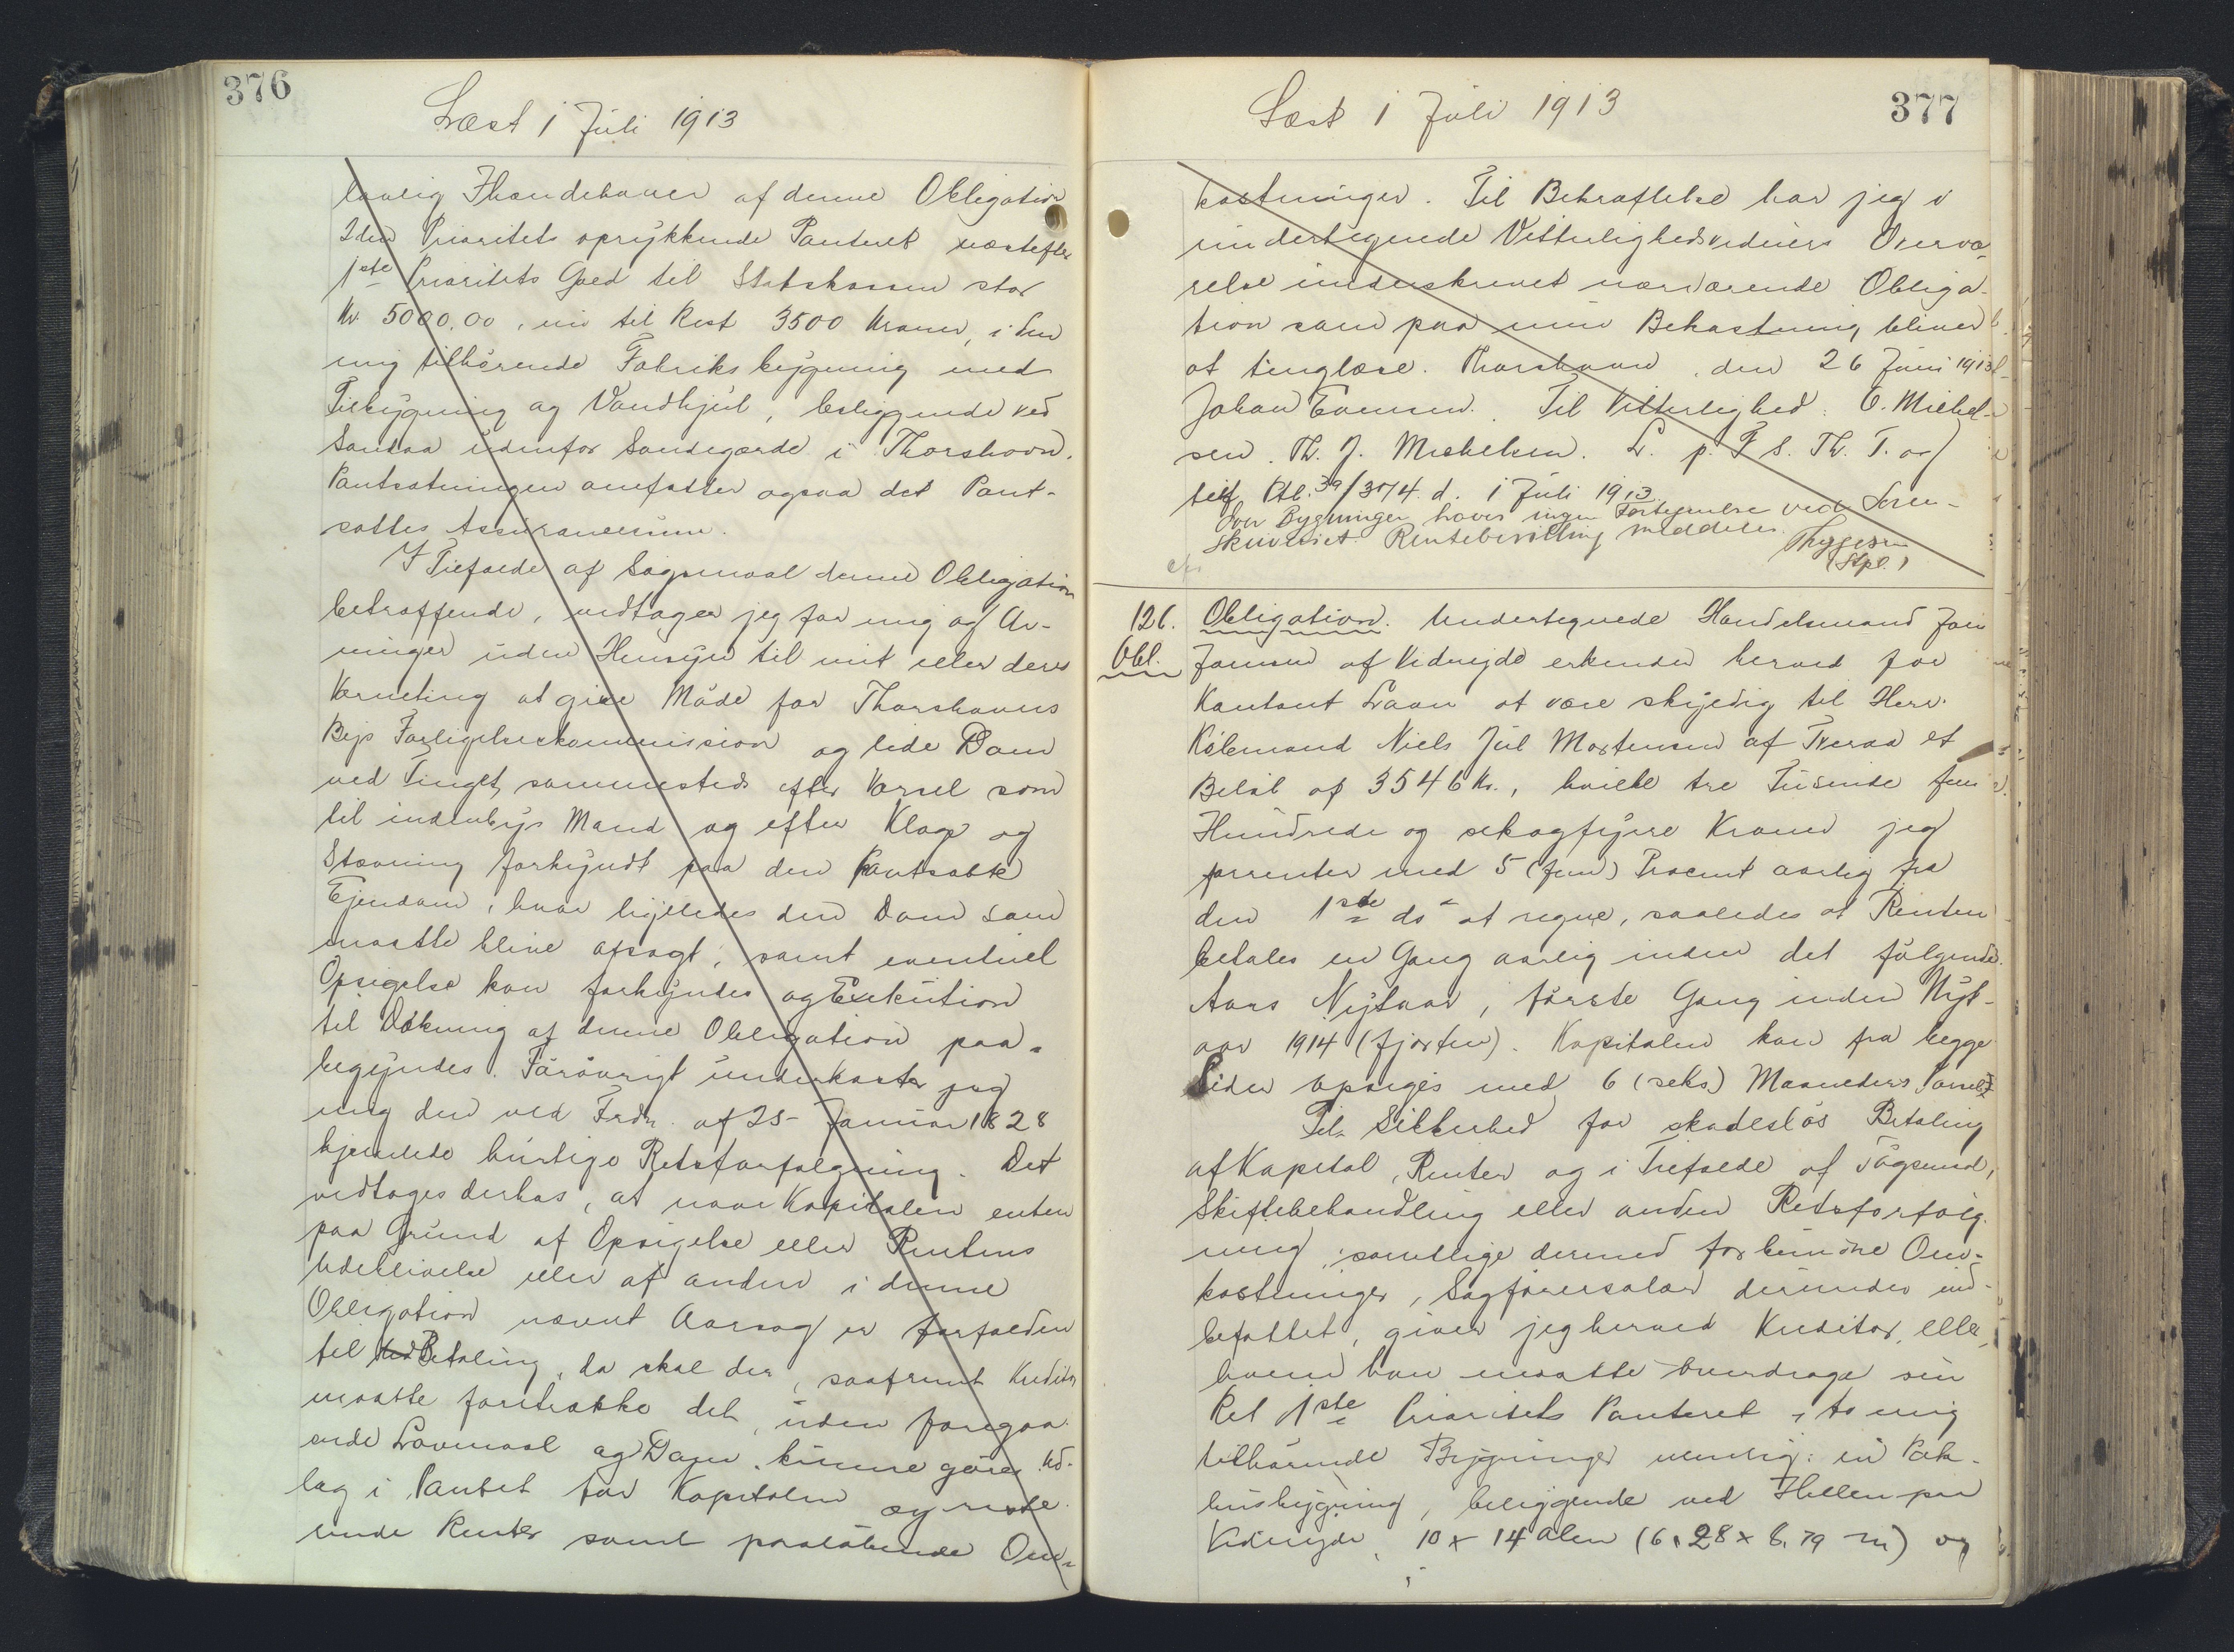 376
Læst 1 Juli 1913
lovlig Ihændehaver af denne Obligation
2den Prioritets oprykkende Panteret næstefter
1ste Prioritets Gæld til Statskassen stor
Kr. 5000,00, nu til Rest 3500 Kroner, i den
mig tilhørende Fabriksbygning med
Tilbygning og Vandhjul, beliggende ved
Sandaa udenfor Sandegærde i Thorshavn.
Pantsætningen omfatter ogsaa det Pant-
sattes Assurancesum.
I Tilfælde af Søgsmaal denne Obligation
betræffende, vedtager jeg for mig og Ar-
vinger uden Hensyn til mit eller deres
Værneting at give Møde for Thorshavns
Bys Forligelseskommission og lide Dom
ved Tinget sammesteds efter Varsel som
til indenbys Mand og efter Klage og
Stævning forkyndt paa den pantsatte
Ejendom, hvor ligeledes den Dom som
maatte blive afsagt, samt eventuel
Opsigelse kan forkyndes og Exekution
til Dækning af denne Obligation paa-
begyndes. Forøvrigt underkaster jeg
mig den ved Frdn. af 25 Januar 1828
hjemlede hurtige Retsforfølgning. Det
vedtages derhos, at naar Kapitalen enten
paa Grund af Opsigelse eller Rentens
Udeblivelse eller af anden i denne
Obligation nævnt Aarsag er forfalden
til Betaling, da skal der, saafremt Kreditor
maatte foretrække det, uden foregaa-
ende Lovmaal og Dom, kunne gøres Ud-
læg i Pantet for Kapitalen og reste-
rende Renter samt paaløbende Om-
377
Læst 1 Juli 1913
kostninger. Til Bekræftelse har jeg i
undertegnede Vitterlighedsvidners Overvæ-
relse underskrevet nærværende Obliga-
tion som paa min Bekostning bliver
at tinglæse. Thorshavn, den 26 Juni 1913
Johan Evensen. Til Vitterlighed: O. Michel-
sen. Th. J. Michelsen. L. p. F. S. Th. T. og
d. 1 Juli 1913.
Over Bygningen haves ingen Fortegnelse ved Soren-
skriveriet. Rentebevilling meddeles.
Thygesen
(Stpl.)
126. Obligation. Undertegnede Handelsmand Joen
Obl. Joensen af Viderejde erkender herved for
Kontant Laan at være skyldig til Herr.
Købmand Niels Jul Mortensen af Tveraa et
Beløb af 3546 Kr., hvilke tre Tusinde fem
Hundrede og seksogfyrre Kroner jeg
forrenter med 5 (fem) Procent aarlig fra
den 1ste ds at regne, saaledes at Renten
betales en Gang aarlig inden det følgende
Aars Nytaar, første Gang inden Nyt-
aar 1914 (fjorten). Kapitalen kan fra begge
Sider opsiges med 6 (seks) Maaneders Varsel
Til Sikkerhed for skadesløs Betaling
af Kapital, Renter og i Tilfælde af Søgsmaal,
Skiftebehandling eller anden Retsforfølg-
ning, samtlige dermed forbundne Om-
kostninger, Sagførersalær derunder ind-
befattet, giver jeg herved Kreditor, eller
hvem han maatte overdrage sin
Ret 1ste Prioritets Panteret i to mig
tilhørende Bygninger nemlig: en Pak-
husbygning, beliggende ved Hellen paa
Viderejde, 10 x 14 Alen (6,28 x 8,79 m) og